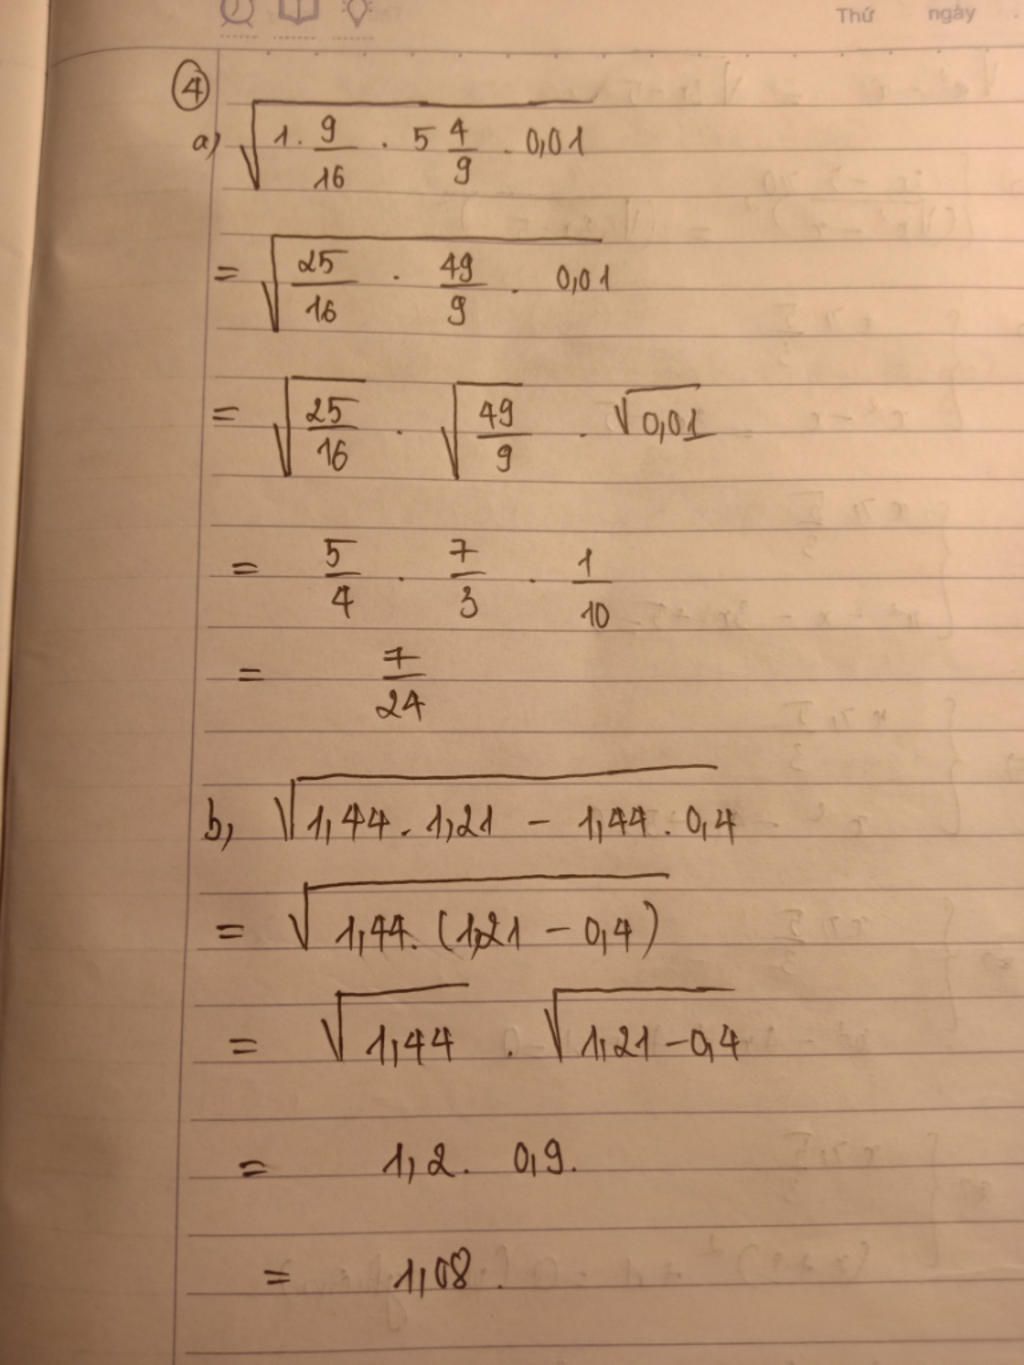 Thứ ngày
④
a) √(1. 9/16 . 5 4/9 . 0,01)
= √(25/16 . 49/9 . 0,01)
= √(25/16) . √(49/9) . √(0,01)
= 5/4 . 7/3 . 1/10
= 7/24
b, √(1,44 . 1,21 - 1,44 . 0,4)
= √(1,44. (1,21 - 0,4))
= √(1,44) . √(1,21 - 0,4)
= 1,2 . 0,9.
= 1,08.